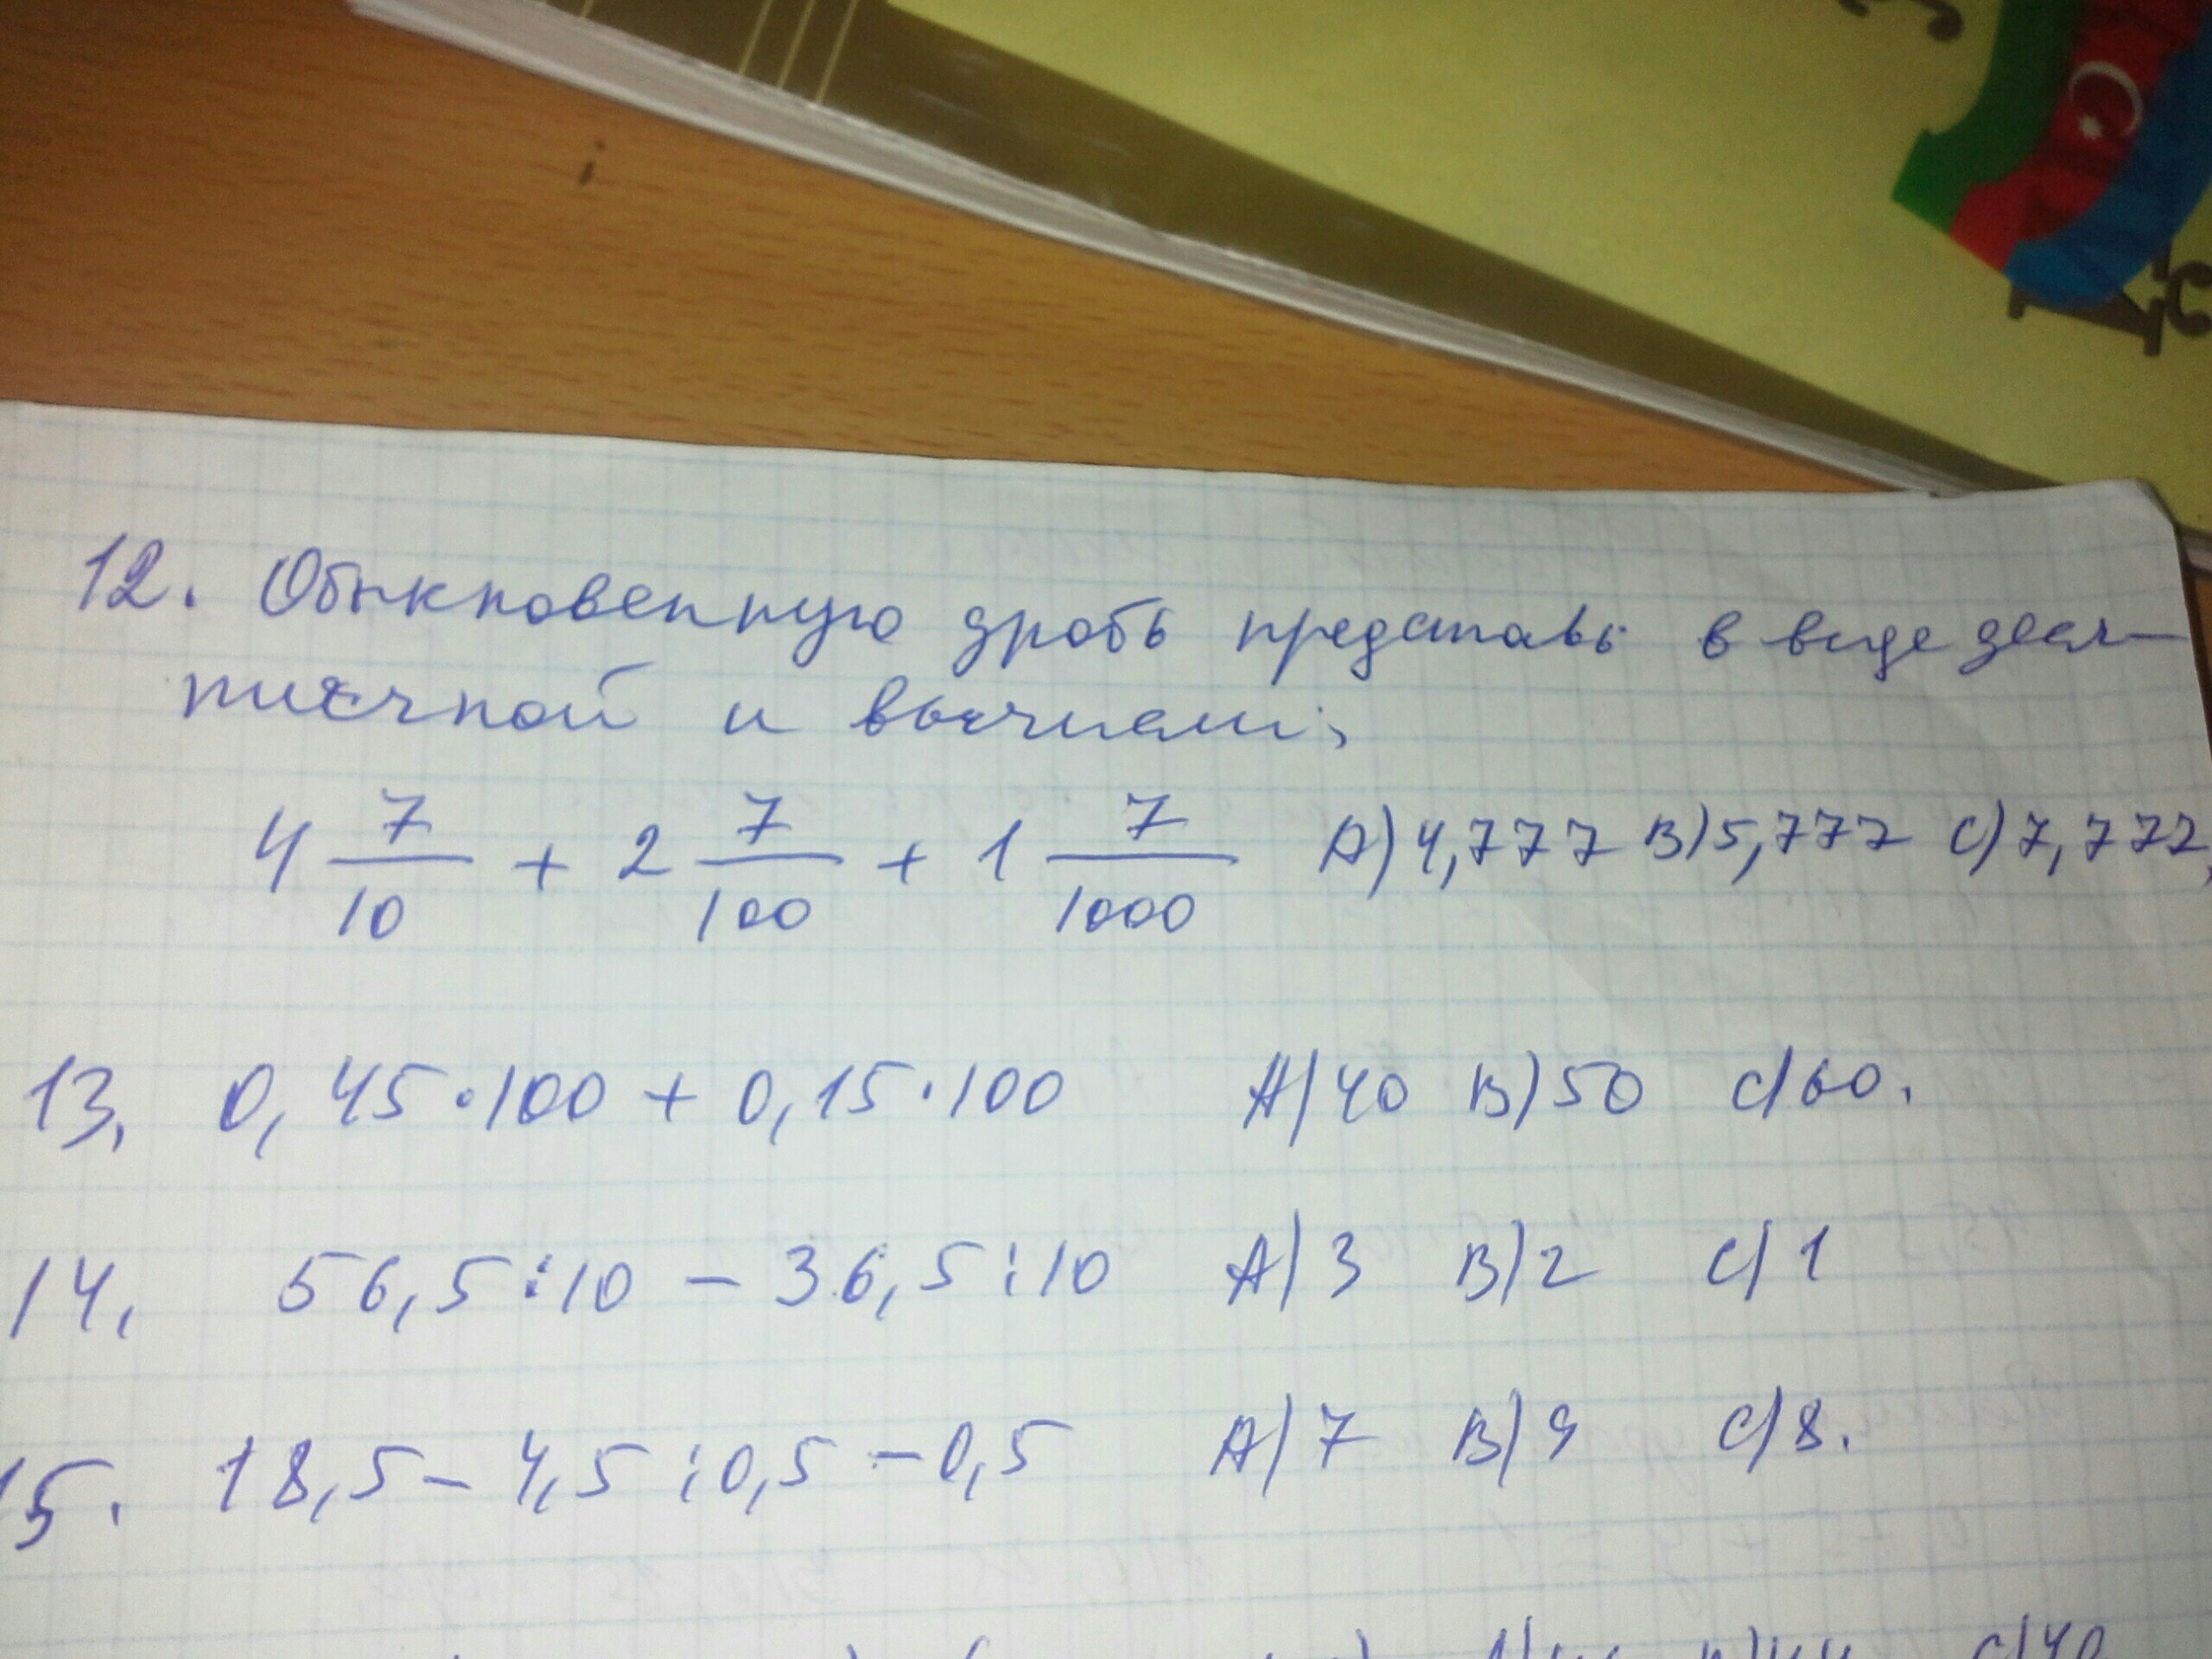 12. Обыкновенную дробь представь в виде деся-
тичной и вычисли;
4 7/10 + 2 7/100 + 1 7/1000 A) 4,777 B) 5,777 C) 7,777,
13, 0,45·100 + 0,15·100 A) 40 B) 50 C) 60.
14, 56,5:10 - 36,5:10 A) 3 B) 2 C) 1
15. 18,5 - 4,5:0,5 - 0,5 A) 7 B) 9 C) 8.